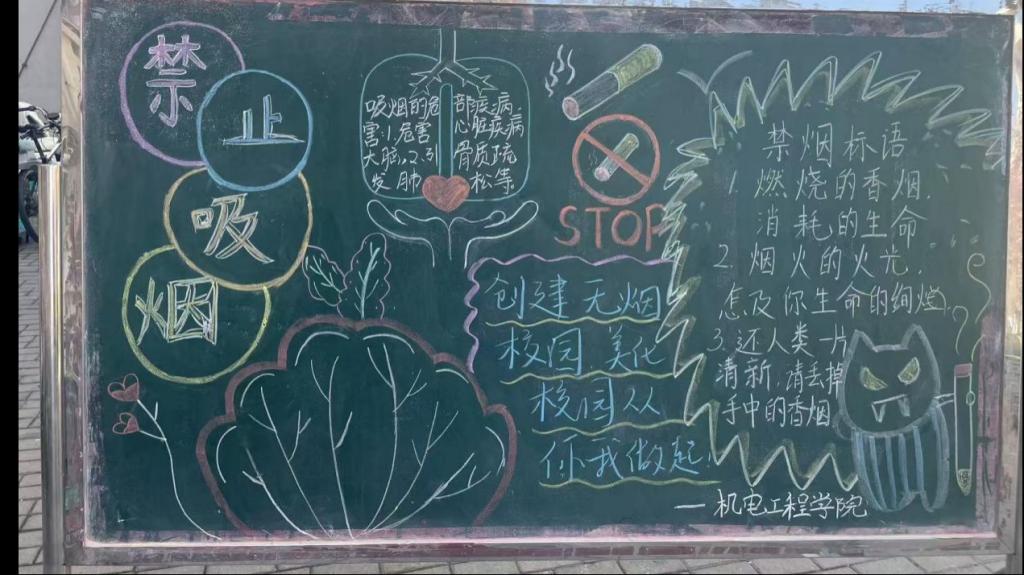 禁
止
吸
烟
吸烟的危
害:1.危害
大脑,2.引
发肺
部疾病,
心脏疾病
骨质疏
松等
STOP
创建无烟
校园,美化
校园从
你我做起!
禁烟标语
1.燃烧的香烟,
消耗的生命
2.烟火的火光,
怎及你生命的绚烂,
3.还人类一片
清新,请丢掉
手中的香烟
—机电工程学院